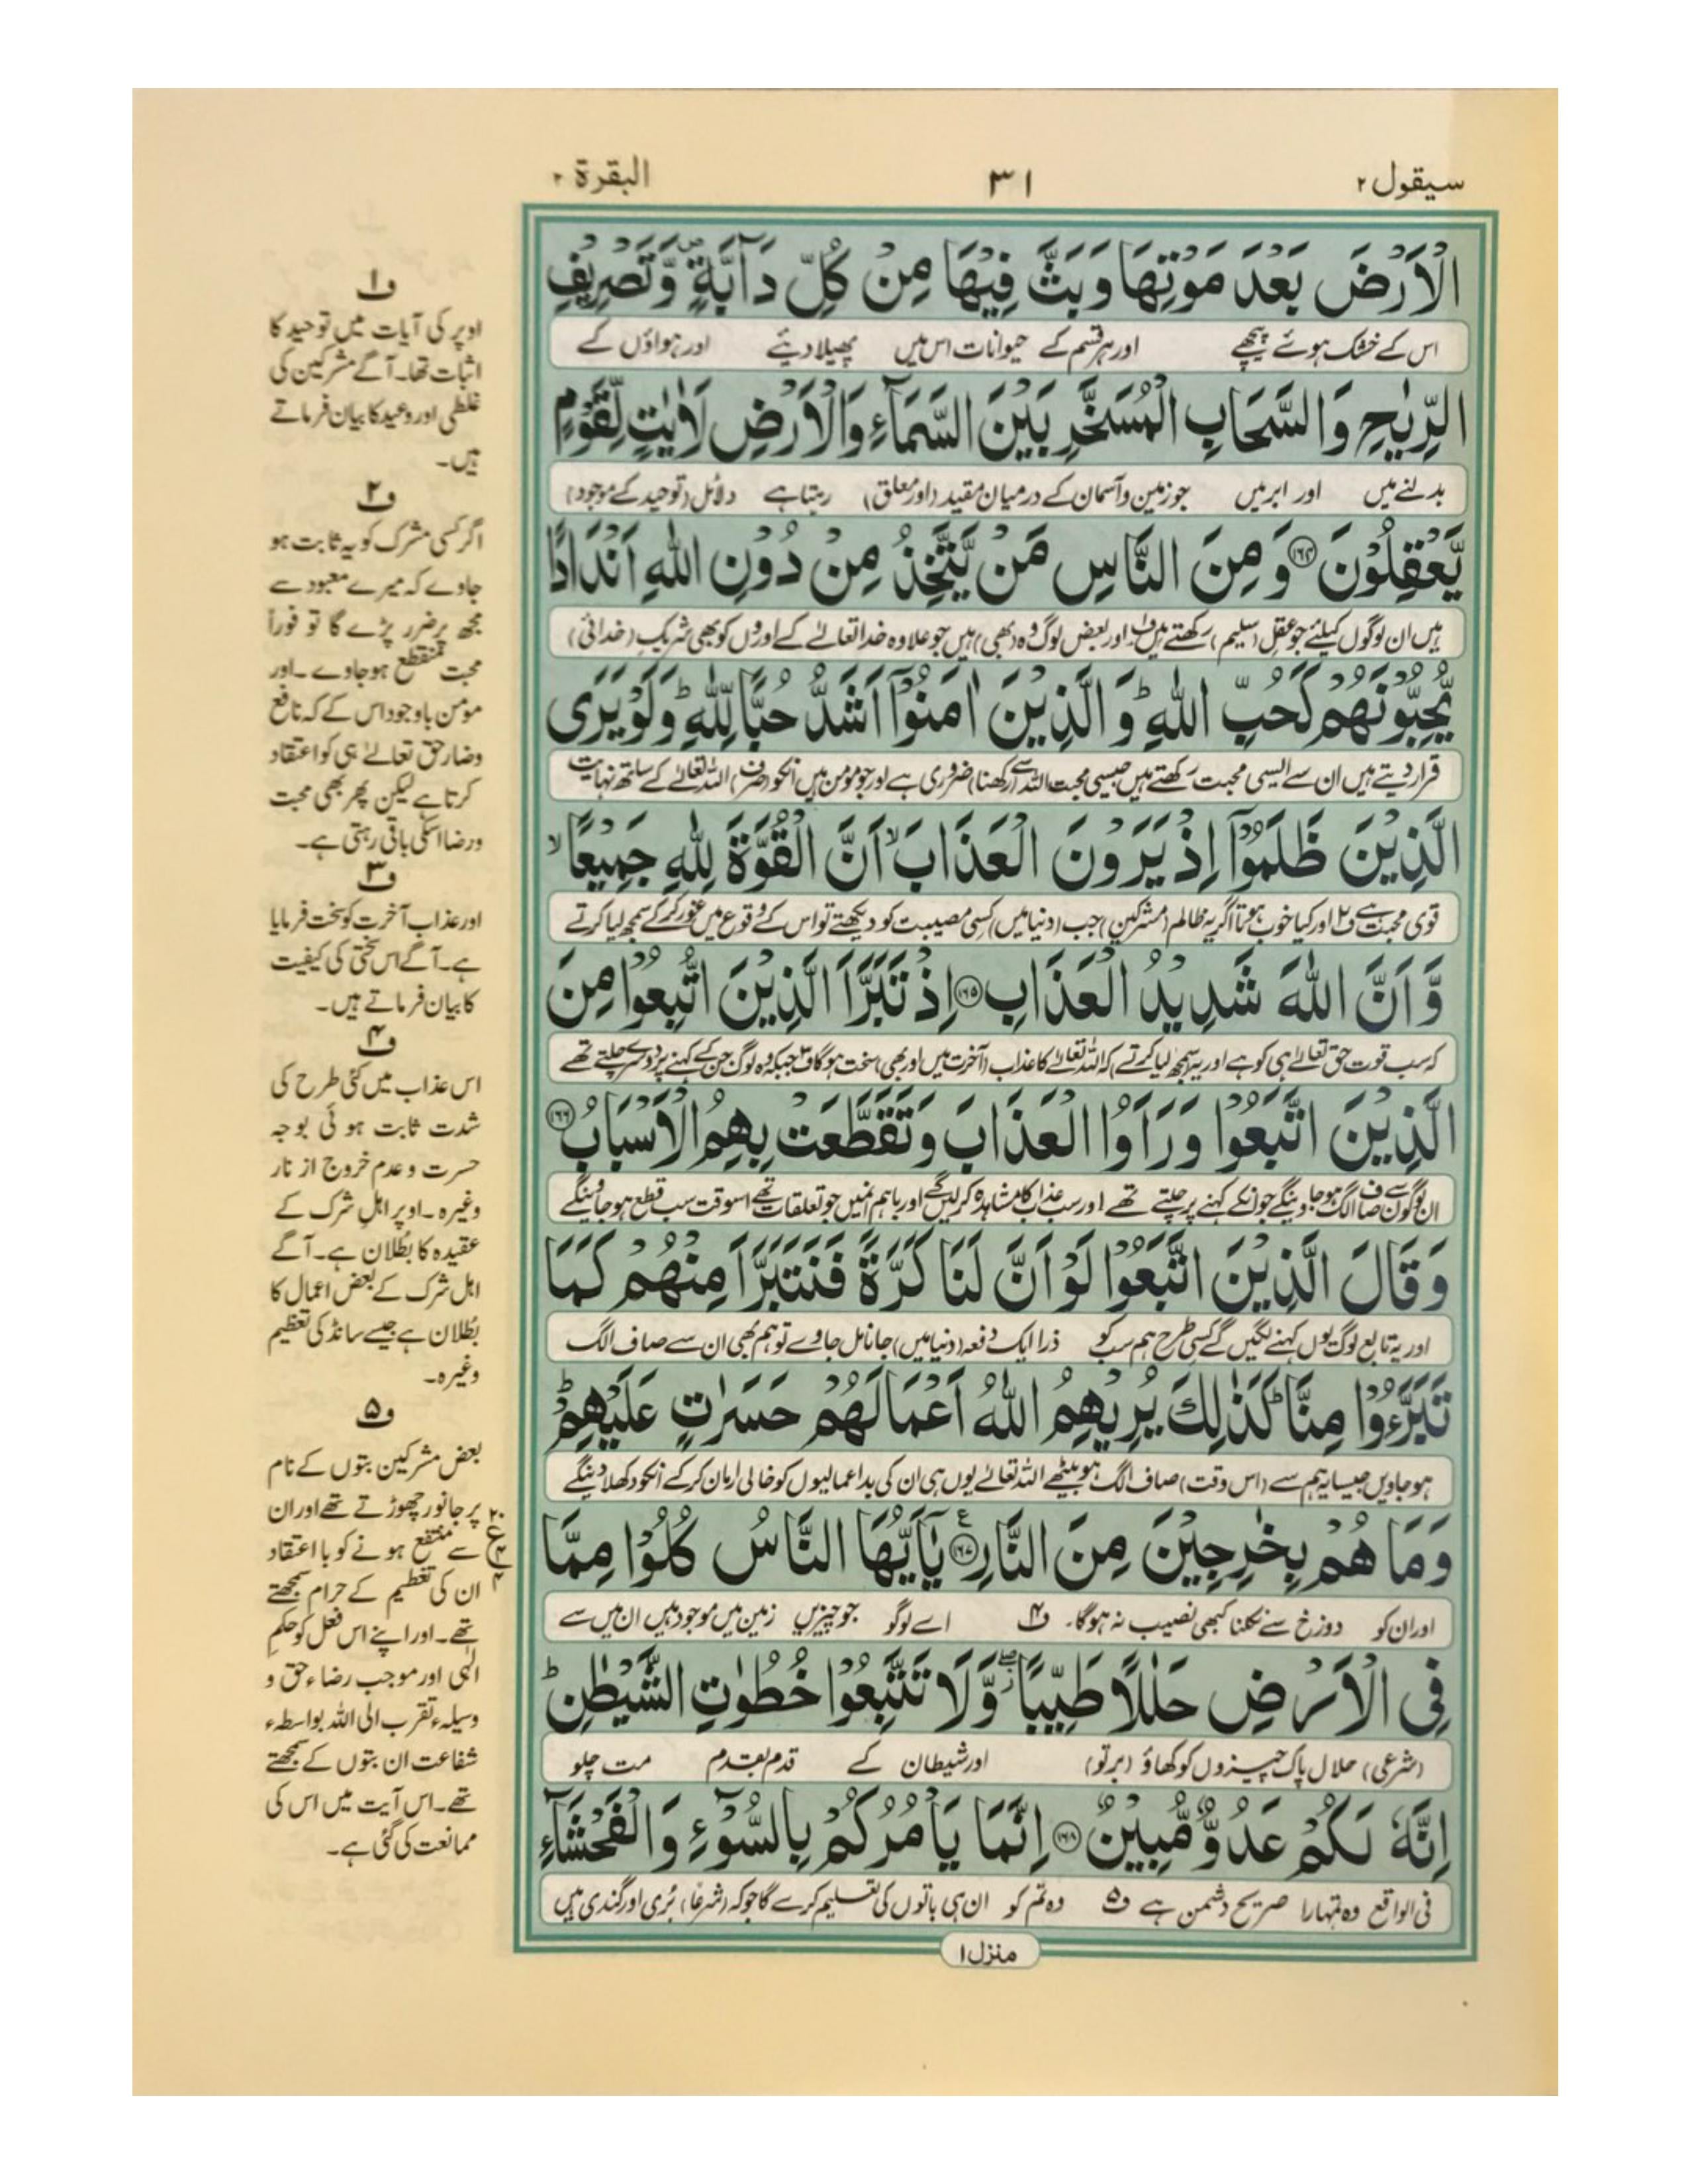 سیقول ٢
٣١
البقرة ٢
الْاَرْضَ بَعْدَ مَوْتِهَا وَبَثَّ فِيْهَا مِنْ كُلِّ دَآبَّةٍ ۪ وَّتَصْرِيْفِ
اس کے خشک ہوئے پیچھے اور ہر قسم کے حیوانات اس میں پھیلا دیئے اور ہواؤں کے
الرِّيٰحِ وَالسَّحَابِ الْمُسَخَّرِ بَيْنَ السَّمَآءِ وَالْاَرْضِ لَاٰيٰتٍ لِّقَوْمٍ
بدلنے میں اور ابر میں جو زمین و آسمان کے درمیان مقید (اور معلق) رہتا ہے دلائل (توحید کے موجود)
يَّعْقِلُوْنَ ﴿١٦٤﴾ وَمِنَ النَّاسِ مَنْ يَّتَّخِذُ مِنْ دُوْنِ اللّٰهِ اَنْدَادًا
ہیں ان لوگوں کیلئے جو عقل (سلیم) رکھتے ہیں ف١ اور بعض لوگ وہ (بھی) ہیں جو علاوہ خدا تعالےٰ کے اوروں کو بھی شریک (خدائی)
يُّحِبُّوْنَهُمْ كَحُبِّ اللّٰهِ ؕ وَالَّذِيْنَ اٰمَنُوْٓا اَشَدُّ حُبًّا لِّلّٰهِ ؕ وَلَوْ يَرَى
قرار دیتے ہیں ان سے ایسی محبت رکھتے ہیں جیسی محبت اللہ سے (رکھنا) ضروری ہے اور جو مومن ہیں انکو (صرف) اللہ تعالےٰ کے ساتھ نہایت
الَّذِيْنَ ظَلَمُوْٓا اِذْ يَرَوْنَ الْعَذَابَ ۙ اَنَّ الْقُوَّةَ لِلّٰهِ جَمِيْعًا ۙ
قوی محبت ہے ف٢ اور کیا خوب ہوتا اگر یہ ظالم (مشرکین) جب (دنیا میں) کسی مصیبت کو دیکھتے تو اس کے وقوع میں غور کر کے سمجھ لیا کرتے
وَّاَنَّ اللّٰهَ شَدِيْدُ الْعَذَابِ ﴿١٦٥﴾ اِذْ تَبَرَّاَ الَّذِيْنَ اتُّبِعُوْا مِنَ
کہ سب قوت حق تعالےٰ ہی کو ہے اور یہ سمجھ لیا کرتے کہ اللہ تعالےٰ کا عذاب (آخرت میں اور بھی) سخت ہوگا ف٣ جبکہ وہ لوگ جن کے کہنے پر دوسرے چلتے تھے
الَّذِيْنَ اتَّبَعُوْا وَرَاَوُا الْعَذَابَ وَتَقَطَّعَتْ بِهِمُ الْاَسْبَابُ ﴿١٦٦﴾
ان لوگوں سے صاف الگ ہو جاوینگے جو انکے کہنے پر چلتے تھے اور سب عذاب کا مشاہدہ کرلیں گے اور باہم انمیں جو تعلقات تھے اسوقت سب قطع ہو جاوینگے
وَقَالَ الَّذِيْنَ اتَّبَعُوْا لَوْ اَنَّ لَنَا كَرَّةً فَنَتَبَرَّاَ مِنْهُمْ كَمَا
اور یہ تابع لوگ یوں کہنے لگیں گے کسی طرح ہم سب کو ذرا ایک دفعہ (دنیا میں) جانا مل جاوے تو ہم بھی ان سے صاف الگ
تَبَرَّءُوْا مِنَّا ؕ كَذٰلِكَ يُرِيْهِمُ اللّٰهُ اَعْمَالَهُمْ حَسَرٰتٍ عَلَيْهِمْ ؕ
ہو جاویں جیسا یہ ہم سے (اس وقت) صاف الگ ہو بیٹھے اللہ تعالےٰ یوں ہی ان کی بد اعمالیوں کو خالی ارمان کر کے انکو دکھلا دینگے
وَمَا هُمْ بِخٰرِجِيْنَ مِنَ النَّارِ ﴿١٦٧﴾ يٰٓاَيُّهَا النَّاسُ كُلُوْا مِمَّا
اور ان کو دوزخ سے نکلنا کبھی نصیب نہ ہوگا۔ ف٤ اے لوگو جو چیزیں زمین میں موجود ہیں ان میں سے
فِي الْاَرْضِ حَلٰلًا طَيِّبًا ۖ وَّلَا تَتَّبِعُوْا خُطُوٰتِ الشَّيْطٰنِ ؕ
(شرعی) حلال پاک چیزوں کو کھاؤ (برتو) اور شیطان کے قدم بقدم مت چلو
اِنَّهٗ لَكُمْ عَدُوٌّ مُّبِيْنٌ ﴿١٦٨﴾ اِنَّمَا يَاْمُرُكُمْ بِالسُّوْٓءِ وَالْفَحْشَآءِ
فی الواقع وہ تمہارا صریح دشمن ہے ف٥ وہ تم کو ان ہی باتوں کی تعلیم کرے گا جو کہ (شرعًا) بُری اور گندی ہیں
منزل ١
ف١
اوپر کی آیات میں توحید کا
اثبات تھا۔ آگے مشرکین کی
غلطی اور وعید کا بیان فرماتے
ہیں۔
ف٢
اگر کسی مشرک کو یہ ثابت ہو
جاوے کہ میرے معبود سے
مجھ پر ضرر پڑے گا تو فوراً
محبت منقطع ہو جاوے۔ اور
مومن باوجود اس کے کہ نافع
وضار حق تعالےٰ ہی کو اعتقاد
کرتا ہے لیکن پھر بھی محبت
ورضا اسکی باقی رہتی ہے۔
ف٣
اور عذاب آخرت کو سخت فرمایا
ہے۔ آگے اس سختی کی کیفیت
کا بیان فرماتے ہیں۔
ف٤
اس عذاب میں کئی طرح کی
شدت ثابت ہوئی بوجہ
حسرت و عدم خروج از نار
وغیرہ۔ اوپر اہلِ شرک کے
عقیدہ کا بُطلان ہے۔ آگے
اہل شرک کے بعض اعمال کا
بُطلان ہے جیسے سانڈ کی تعظیم
وغیرہ۔
ف٥
بعض مشرکین بتوں کے نام
پر جانور چھوڑتے تھے اور ان
سے منتفع ہونے کو با اعتقاد
ان کی تعظیم کے حرام سمجھتے
تھے۔ اور اپنے اس فعل کو حکمِ
الٰہی اور موجب رضاء حق و
وسیلہء تقرب الی اللہ بواسطہء
شفاعت ان بتوں کے سمجھتے
تھے۔ اس آیت میں اس کی
ممانعت کی گئی ہے۔
٢٠
ع
٤
٤